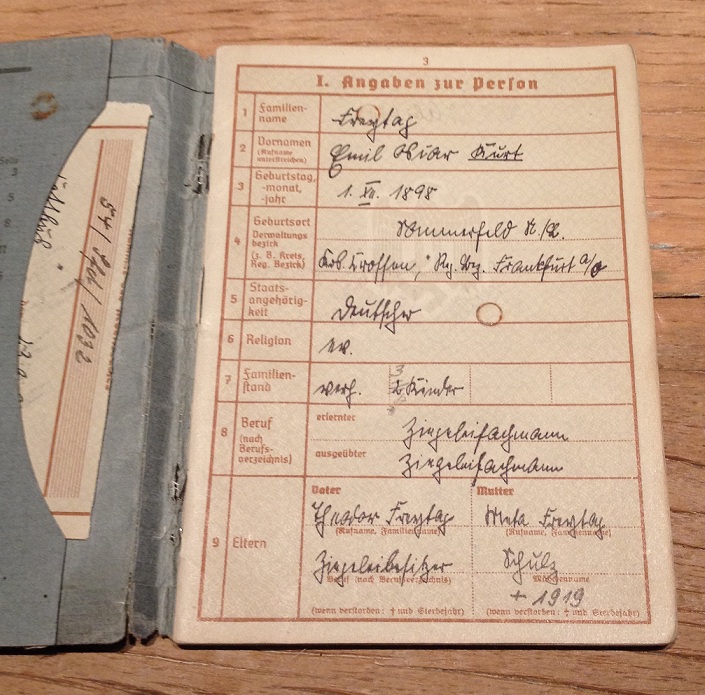 3
I. Angaben zur Person
1 Familien-
name
Freytag
2 Vornamen
(Rufname
unterstreichen)
Emil Oskar Kurt
3 Geburtstag,
-monat,
-jahr
1. XII. 1898
4 Geburtsort
Verwaltungs
bezirk
(z. B. Kreis,
Reg. Bezirk)
Sommerfeld N./L.
Krs. Crossen, Reg. Bez. Frankfurt a/O
5 Staats-
angehörig-
keit
Deutscher
6 Religion
ev.
7 Familien-
stand
verh. 3 Kinder
8 Beruf
(nach
Berufs-
verzeichnis)
erlernter
Ziegeleifachmann
ausgeübter
Ziegeleifachmann
9 Eltern
Vater
Theodor Freytag
(Rufname, Familienname)
Ziegeleibesitzer
Beruf (nach Berufsverzeichnis)
(wenn verstorben: † und Sterbejahr)
Mutter
Meta Freytag
(Rufname, Familienname)
Schulz
Mädchenname
† 1919
(wenn verstorben: † und Sterbejahr)